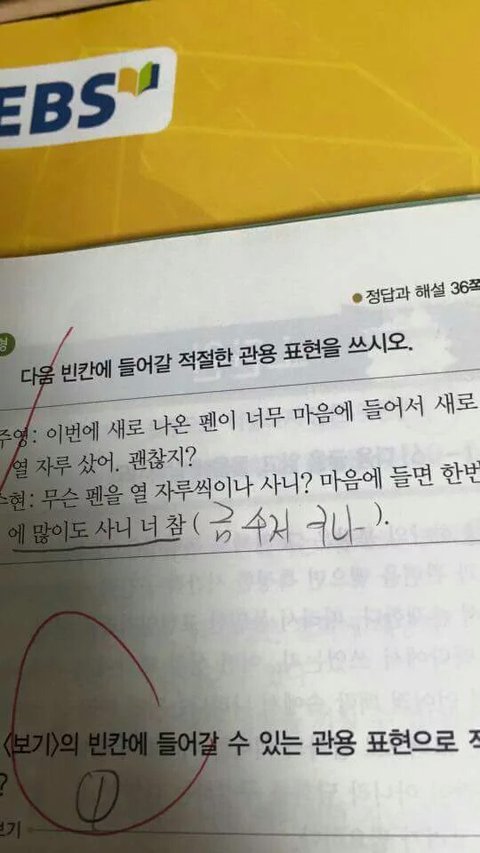 EBS
정답과 해설 36쪽
형
다음 빈칸에 들어갈 적절한 관용 표현을 쓰시오.
주영: 이번에 새로 나온 펜이 너무 마음에 들어서 새로
열 자루 샀어. 괜찮지?
수현: 무슨 펜을 열 자루씩이나 사니? 마음에 들면 한번
에 많이도 사니 너 참 ( 금 수저 구나 ).
<보기>의 빈칸에 들어갈 수 있는 관용 표현으로 적
?
①
보기